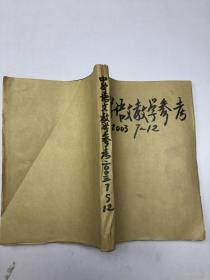 中学语文教学参考二〇〇三7〜12
语文教学参考
2003 7~12